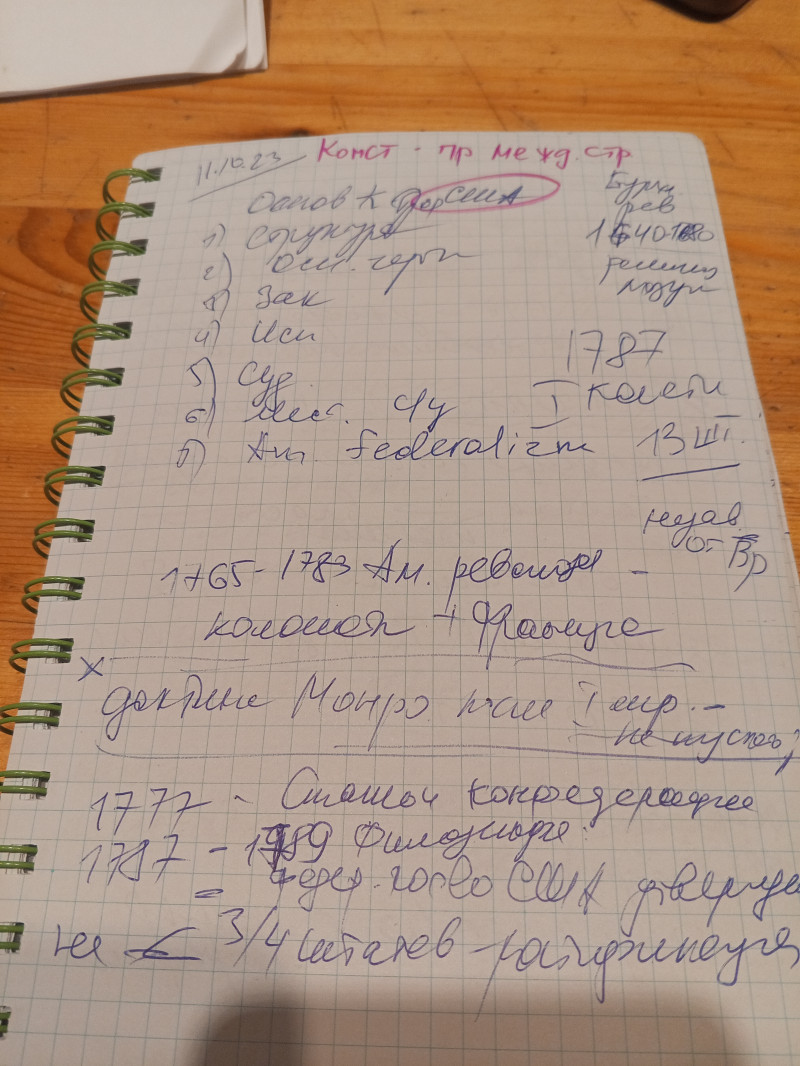 11.10.23 Конст. пр межд. стр
Основ США
1) Структура
2) осн. черты
3) Зак
4) Исп
5) Суд
6) Мест. Чу
Am. Federalizm
Бурж
рев
1640
1787
I Консти
13 шт.
незав.
от Вр
1765-1783 Ам. революция -
колонист + Франция
доктрина Монро I мир. -
не пускать
1777 - Статьи конфедерации
1787 - 1789 Филадельфия:
федер. госво США утвержден
не < 3/4 штатов ратификация